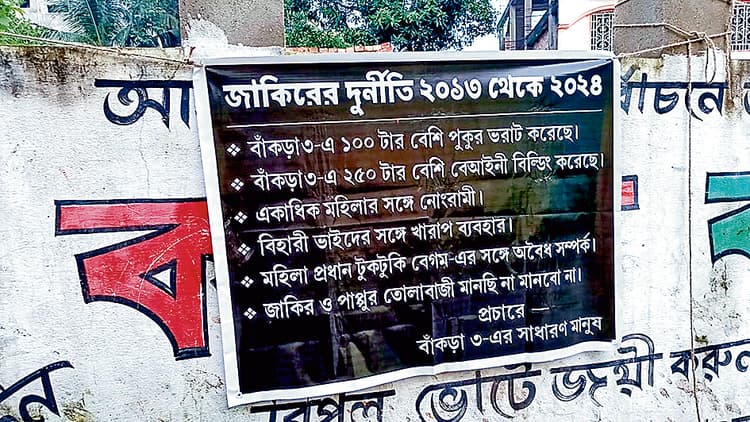 জাকিরের দুর্নীতি ২০১৩ থেকে ২০২৪
❖ বাঁকড়া৩-এ ১০০ টার বেশি পুকুর ভরাট করেছে।
❖ বাঁকড়া৩-এ ২৫০ টার বেশি বেআইনী বিল্ডিং করেছে।
❖ একাধিক মহিলার সঙ্গে নোংরামী।
❖ বিহারী ভাইদের সঙ্গে খারাপ ব্যবহার।
❖ মহিলা প্রধান টুকটুকি বেগম-এর সঙ্গে অবৈধ সম্পর্ক।
❖ জাকির ও পাপ্পুর তোলাবাজী মানছি না মানবো না।
প্রচারে —
বাঁকড়া ৩-এর সাধারণ মানুষ
বিপুল ভোটে জয়ী করুন